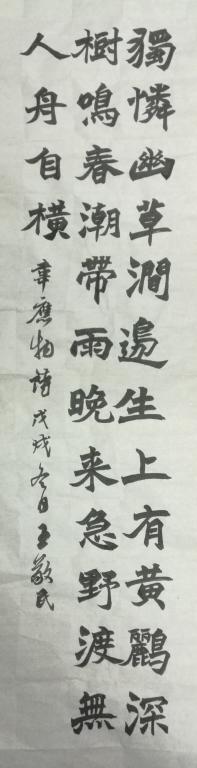 獨憐幽草澗邊生上有黃鸝深
樹鳴春潮帶雨晚来急野渡無
人舟自橫
韋應物詩戊戌冬日王敬民